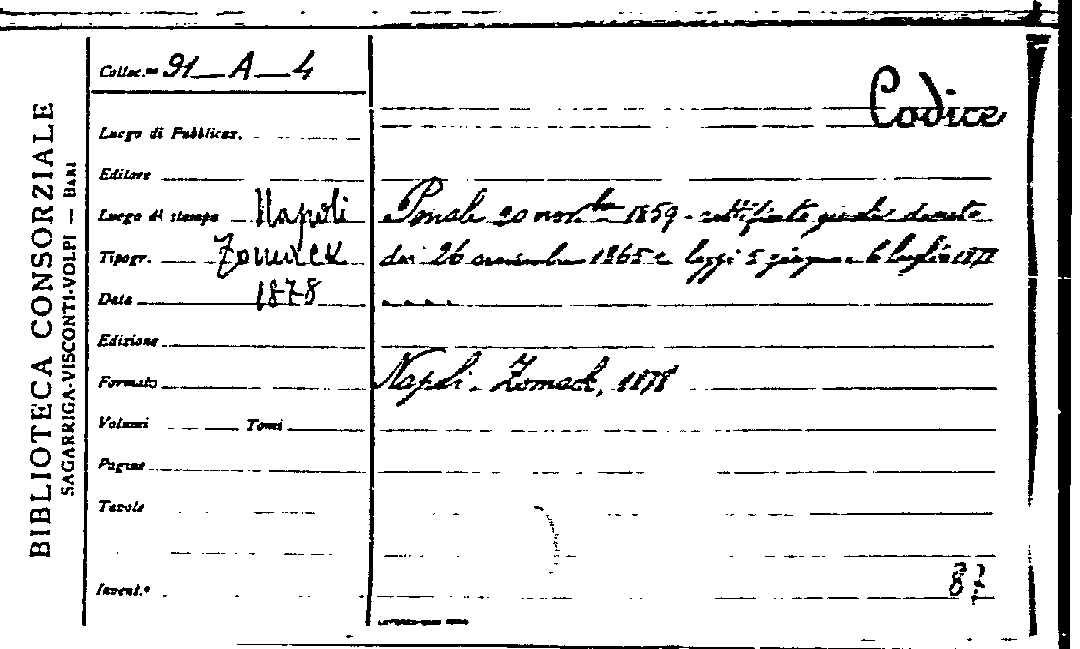 BIBLIOTECA CONSORZIALE
SAGARRIGA-VISCONTI-VOLPI — BARI
Colloc.ne 91 — A — 4
Codice
Luogo di Pubblicaz.
Editore
Luogo di stampa Napoli
Penale 20 novbre 1859 - rettificato giusta decreto
Tipogr.
dei 26 novembre 1865 e leggi 5 giugno e 6 luglio
Data 1878
....
Edizione
Formato
Napoli - 1878
Volumi Tomi
Pagine
Tavole
Invent.°